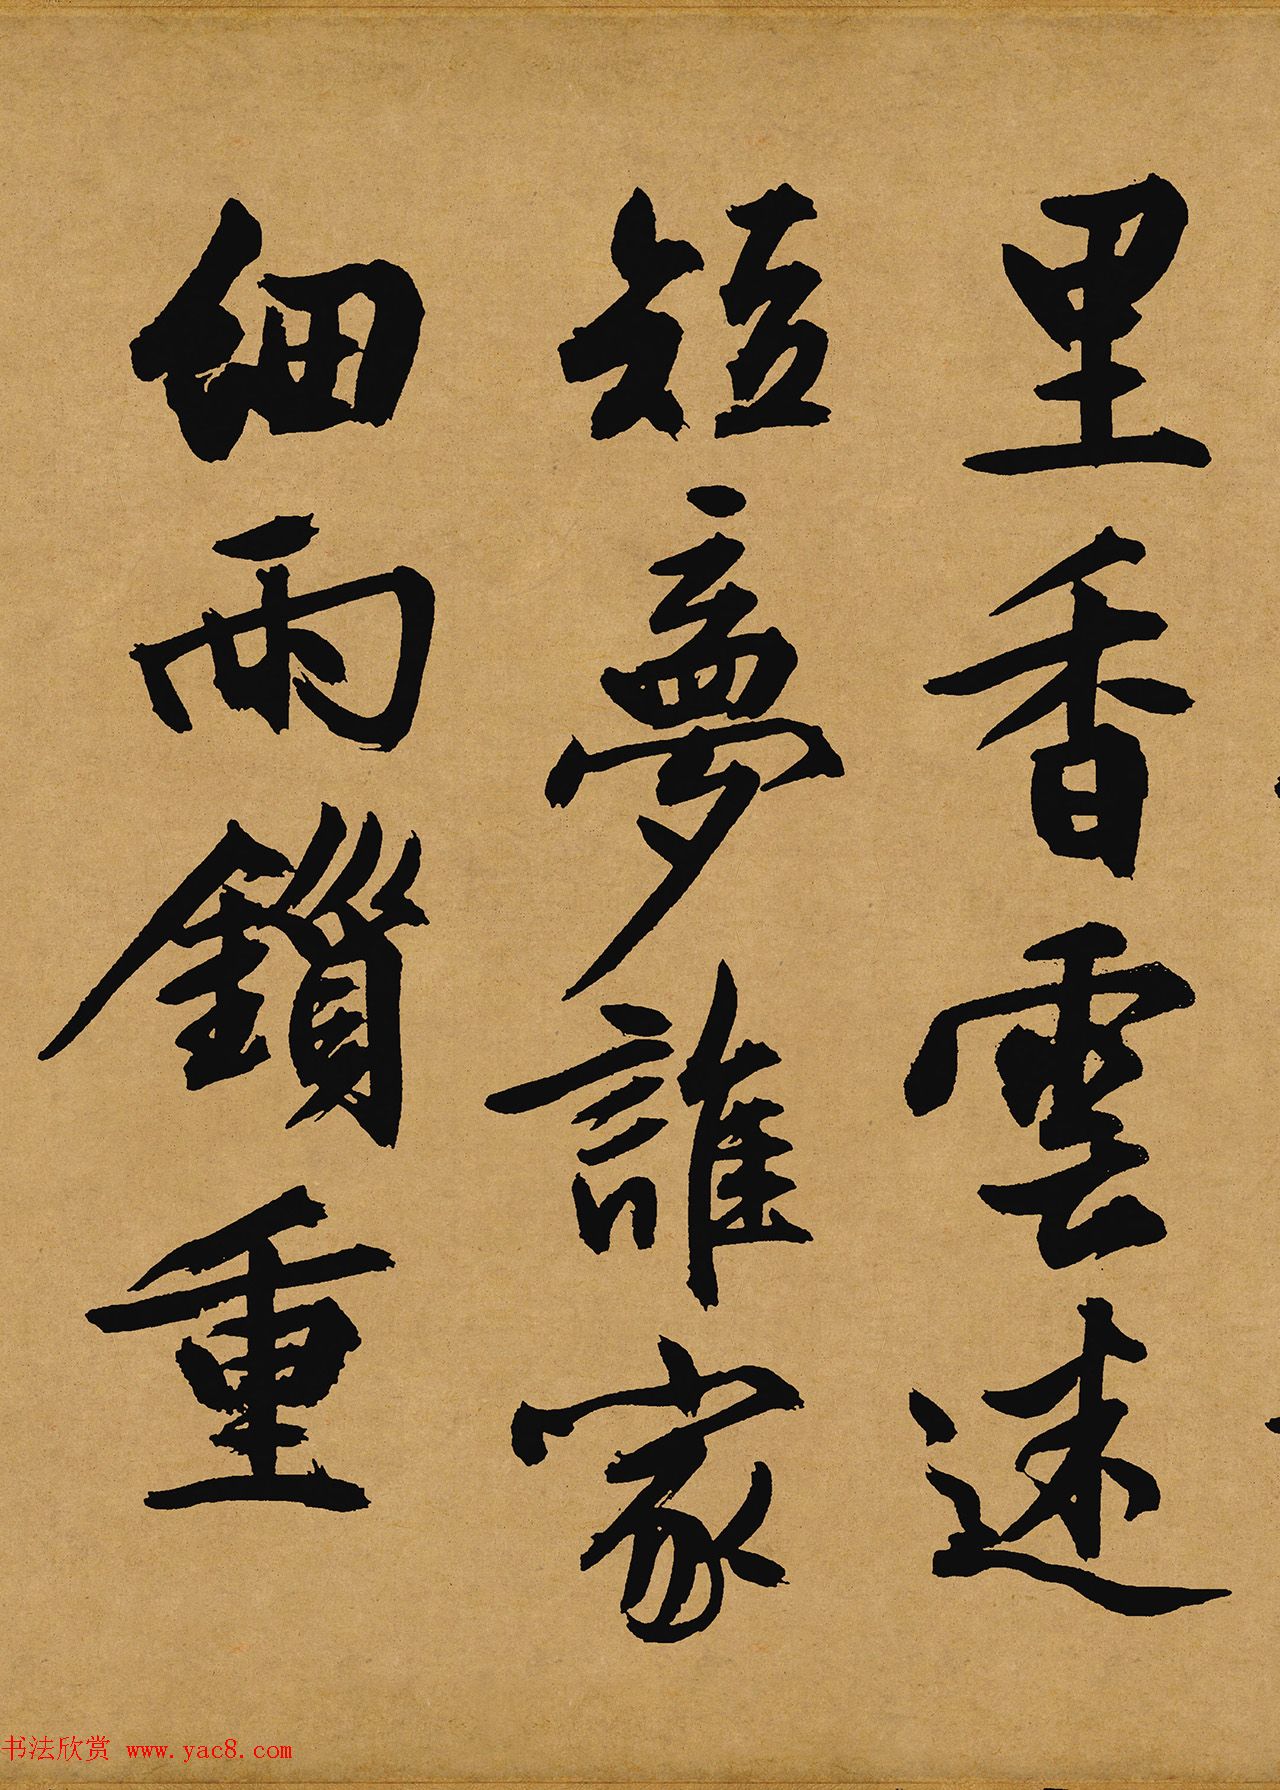 里香雲迷
短夢誰家
細雨鎖重
书法欣赏 www.yac8.com